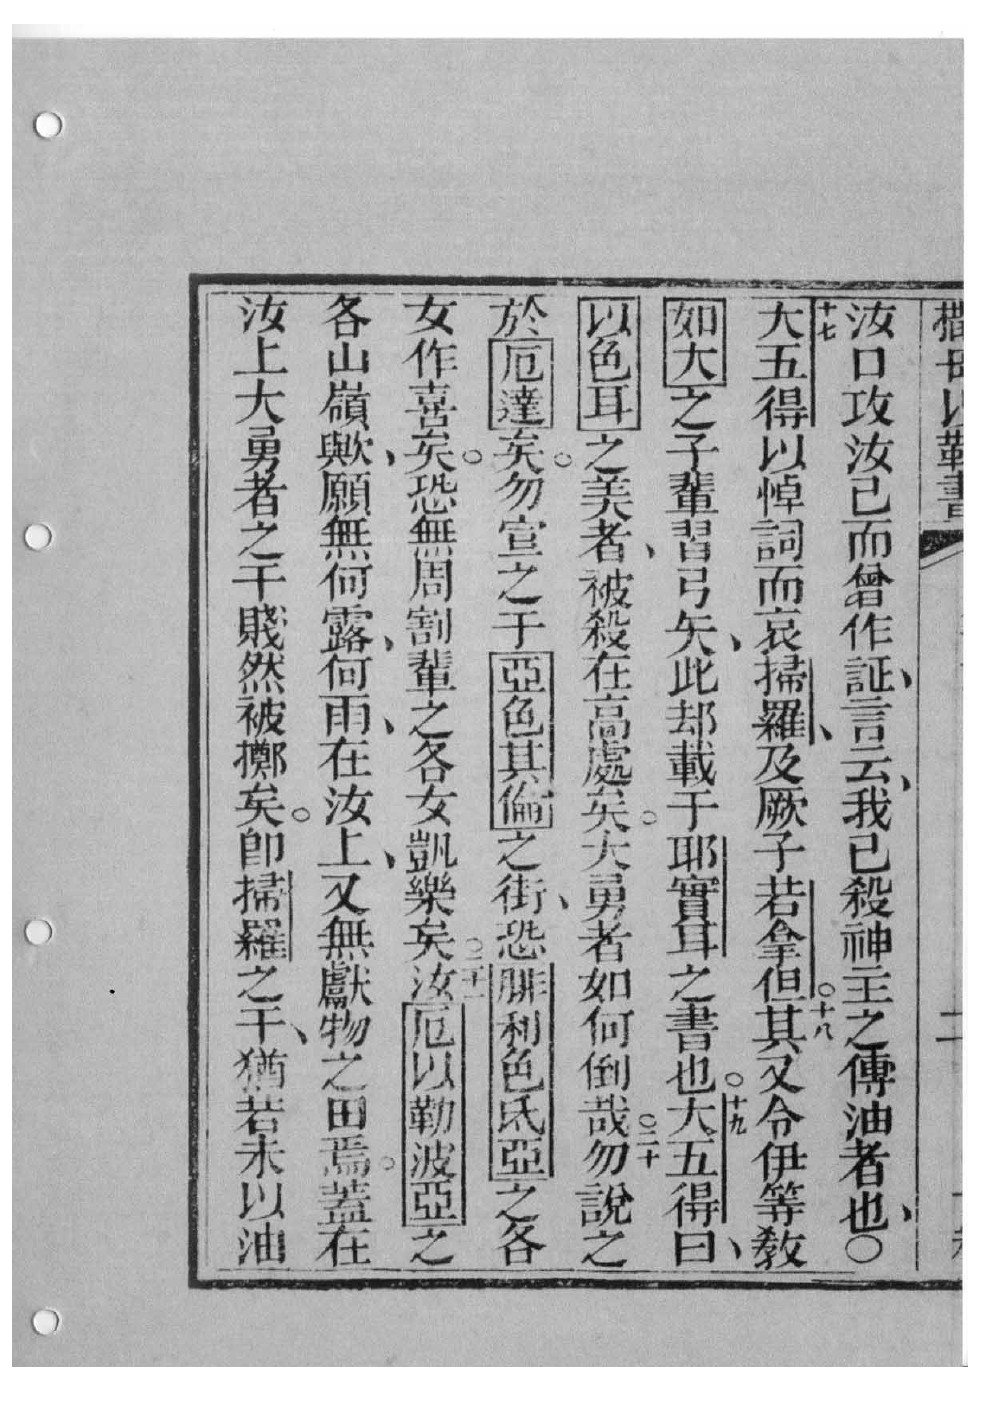 撒母以勒書 二
汝口攻汝己而曾作証、言云、我已殺神主之傳油者也、○
十七大五得以悼詞而哀掃羅、及厥子若拿但。○十八其又令伊等教
如大之子輩習弓矢、此却載于耶實耳之書也。○十九大五得曰、
以色耳之美者、被殺在高處矣。○大勇者如何倒哉○二十勿說之
於厄達矣。○勿宣之于亞色其倫之街、恐腓利色氏亞之各
女作喜矣。○恐無周割輩之各女凱樂矣○二十一汝厄以勒波亞之
各山嶺歟、願無何露、何雨、在汝上、又無獻物之田焉○蓋在
汝上大勇者之干賤然被擲矣○即掃羅之干、猶若未以油